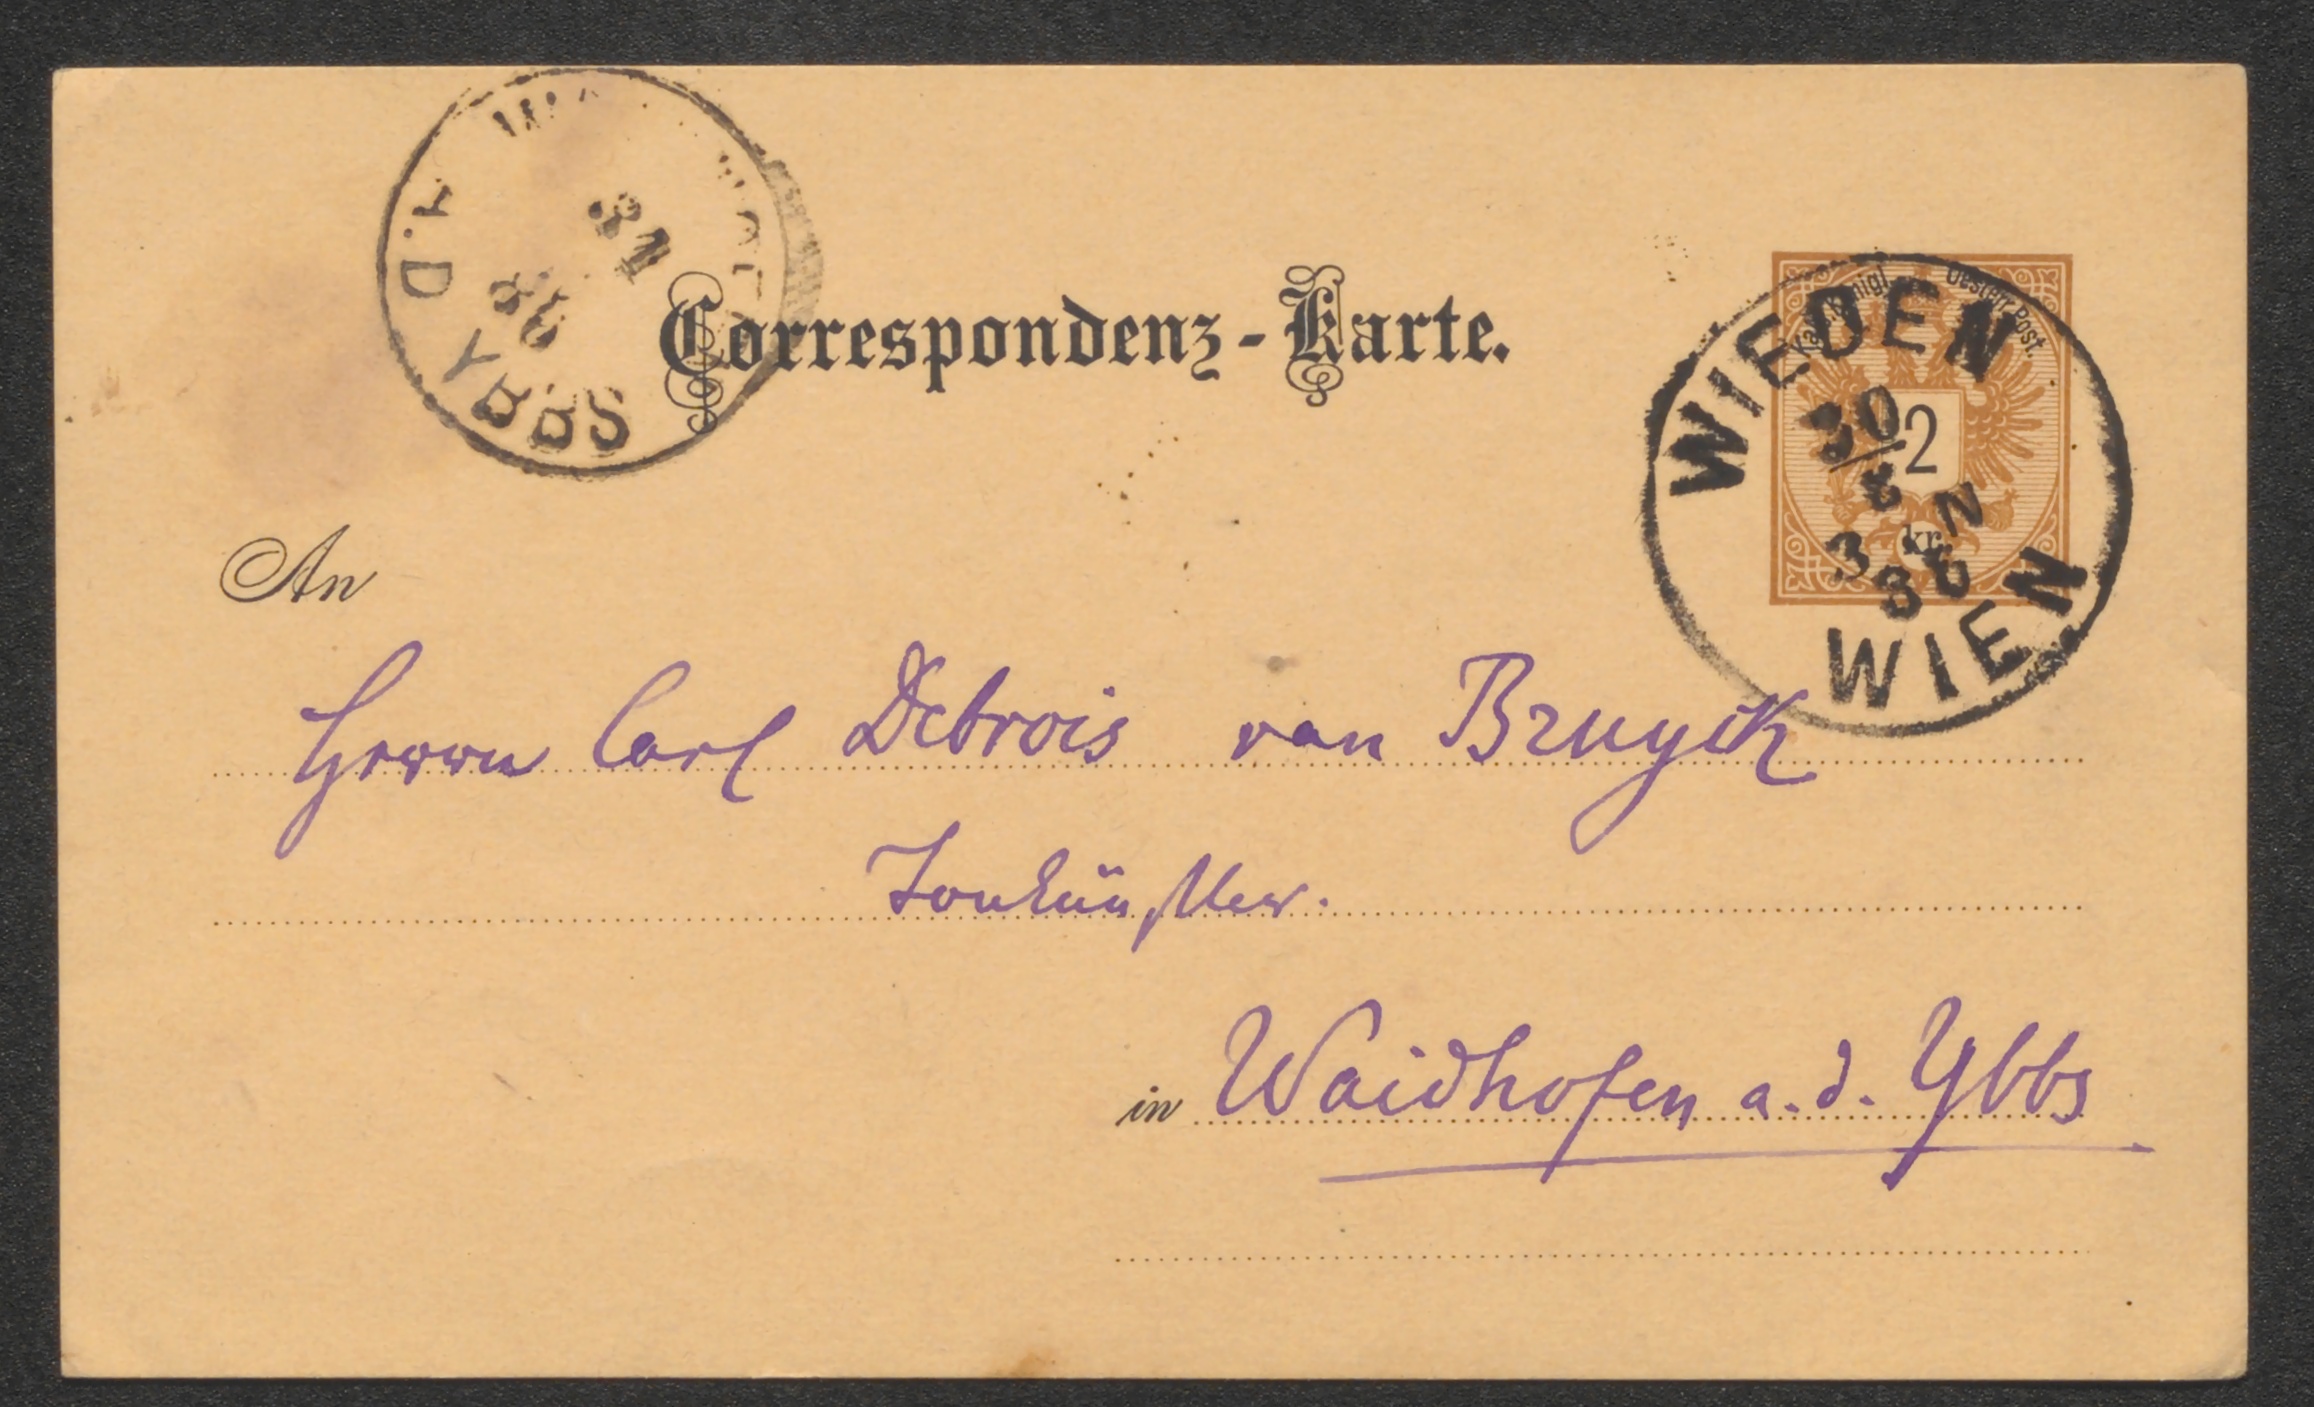 A.D YBBS
31
86
Correspondenz-Karte.
Kais. Königl. Oesterr. Post.
2
kr.
WIEDEN
30
8
3 N
86
WIEN
An
Herrn Carl Debrois van Bruyck
Tonkünstler.
in Waidhofen a. d. Ybbs